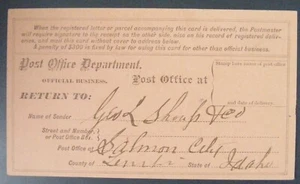 When the registered letter or parcel accompanying this card is delivered, the Postmaster
will require signature to the receipt on the other side, and also on his record of registered deliv-
eries, and mail this card without cover to address below.
A penalty of $300 is fixed by law for using this card for other than official business.
Post Office Department.
OFFICIAL BUSINESS.
Post Office at
RETURN TO:
and date of delivery.
Name of Sender Geo L Shoup & Co
Street and Number,
or Post Office Box.
Post Office at Salmon City
County of Lemhi State of Idaho